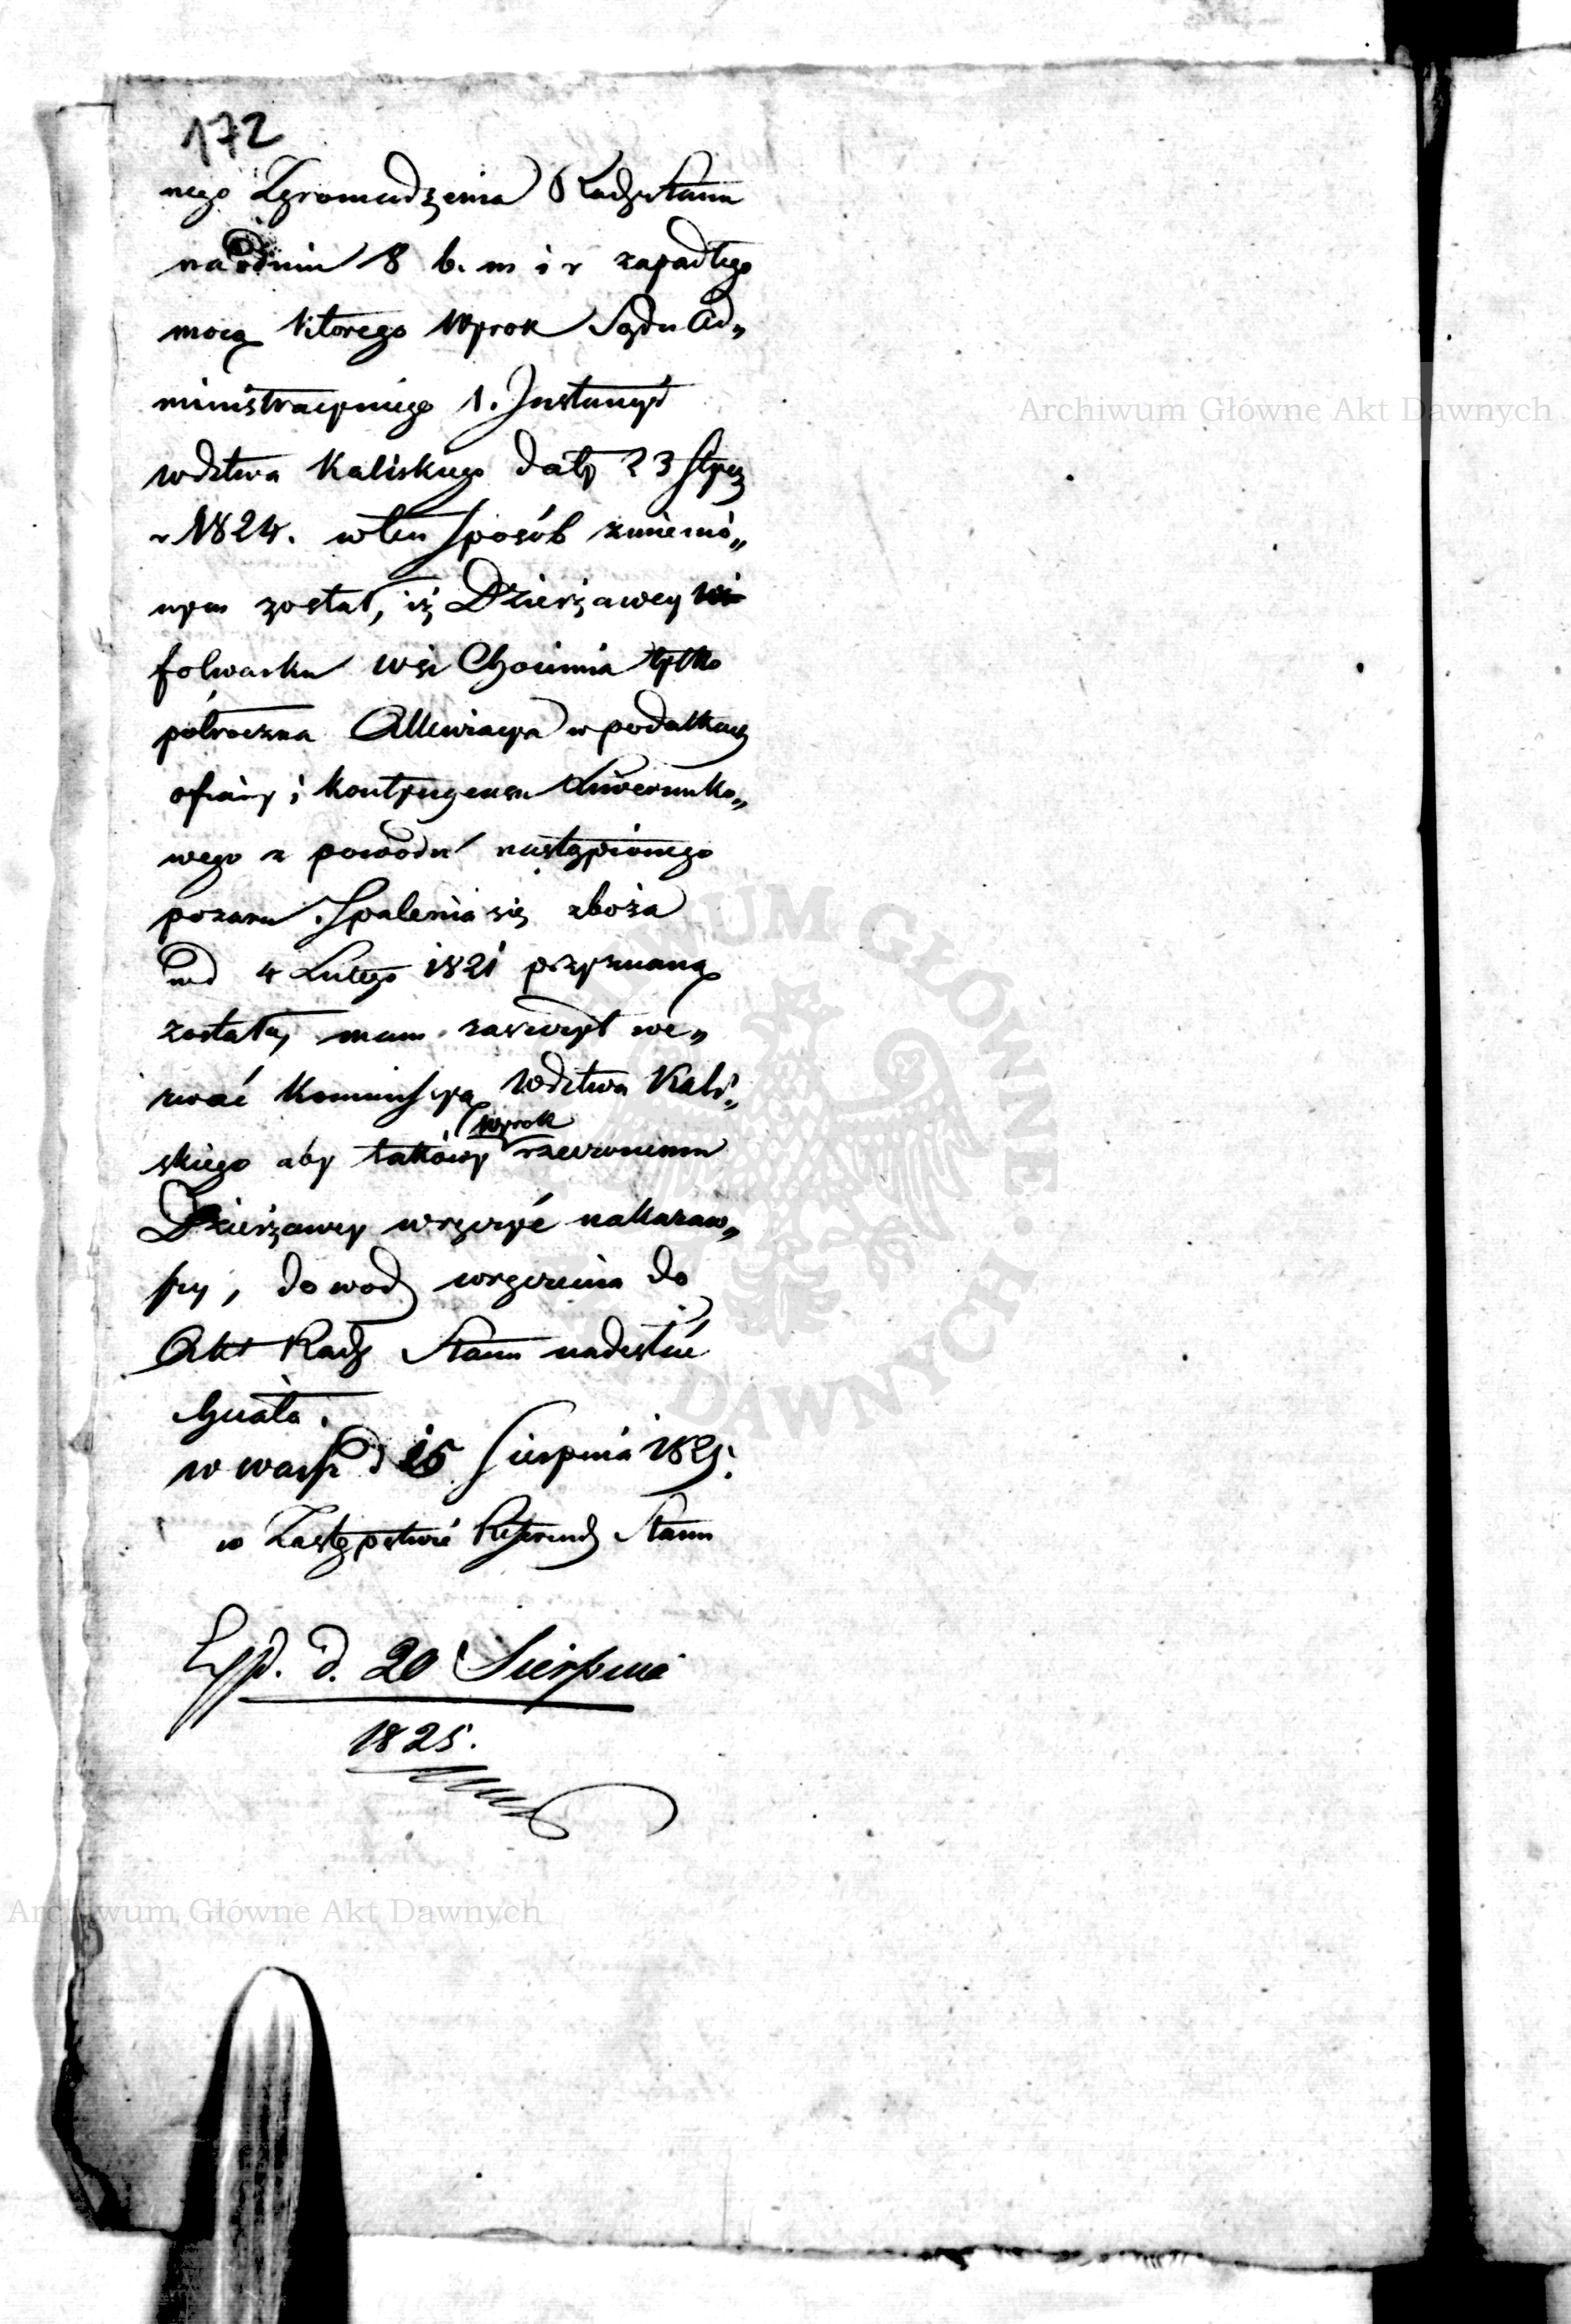 172
nego Zgromadzenia Rady Stanu
na dniu 8 b. m i r zapadłego
mocą którego Wyrok Sądu Ad„
ministracyinego 1. Instancyi
wdztwa Kaliskiego daty 23 Stycz
r 1824. w ten sposób zmienio„
nym został, iż Dzierżawcy
folwarku wsi Chocimia tylko
półroczna Allewiacya w podatkach
ofiary i kontyngensu Liwerunko„
wego z powodu nastąpionego
pożaru Spalenia się zboża
od 4 Lutego 1821 przyznaną
została, mam zaszczyt we„
zwać Kommissyą Wdztwa Kali„
skiego aby takowy wyrok rzeczonemu
Dzierżawcy wręczyć nakazaw„
szy, dowod wręczenia do
Akt Rady Stanu nadesłać
chciała.
w Warsz d 15 Sierpnia 1825.
w Zastępstwie Referend Stanu
Exp. d. 20 Sierpnia
1825.
Archiwum Główne Akt Dawnych
Archiwum Główne Akt Dawnych
ARCHIWUM GŁÓWNE AKT DAWNYCH